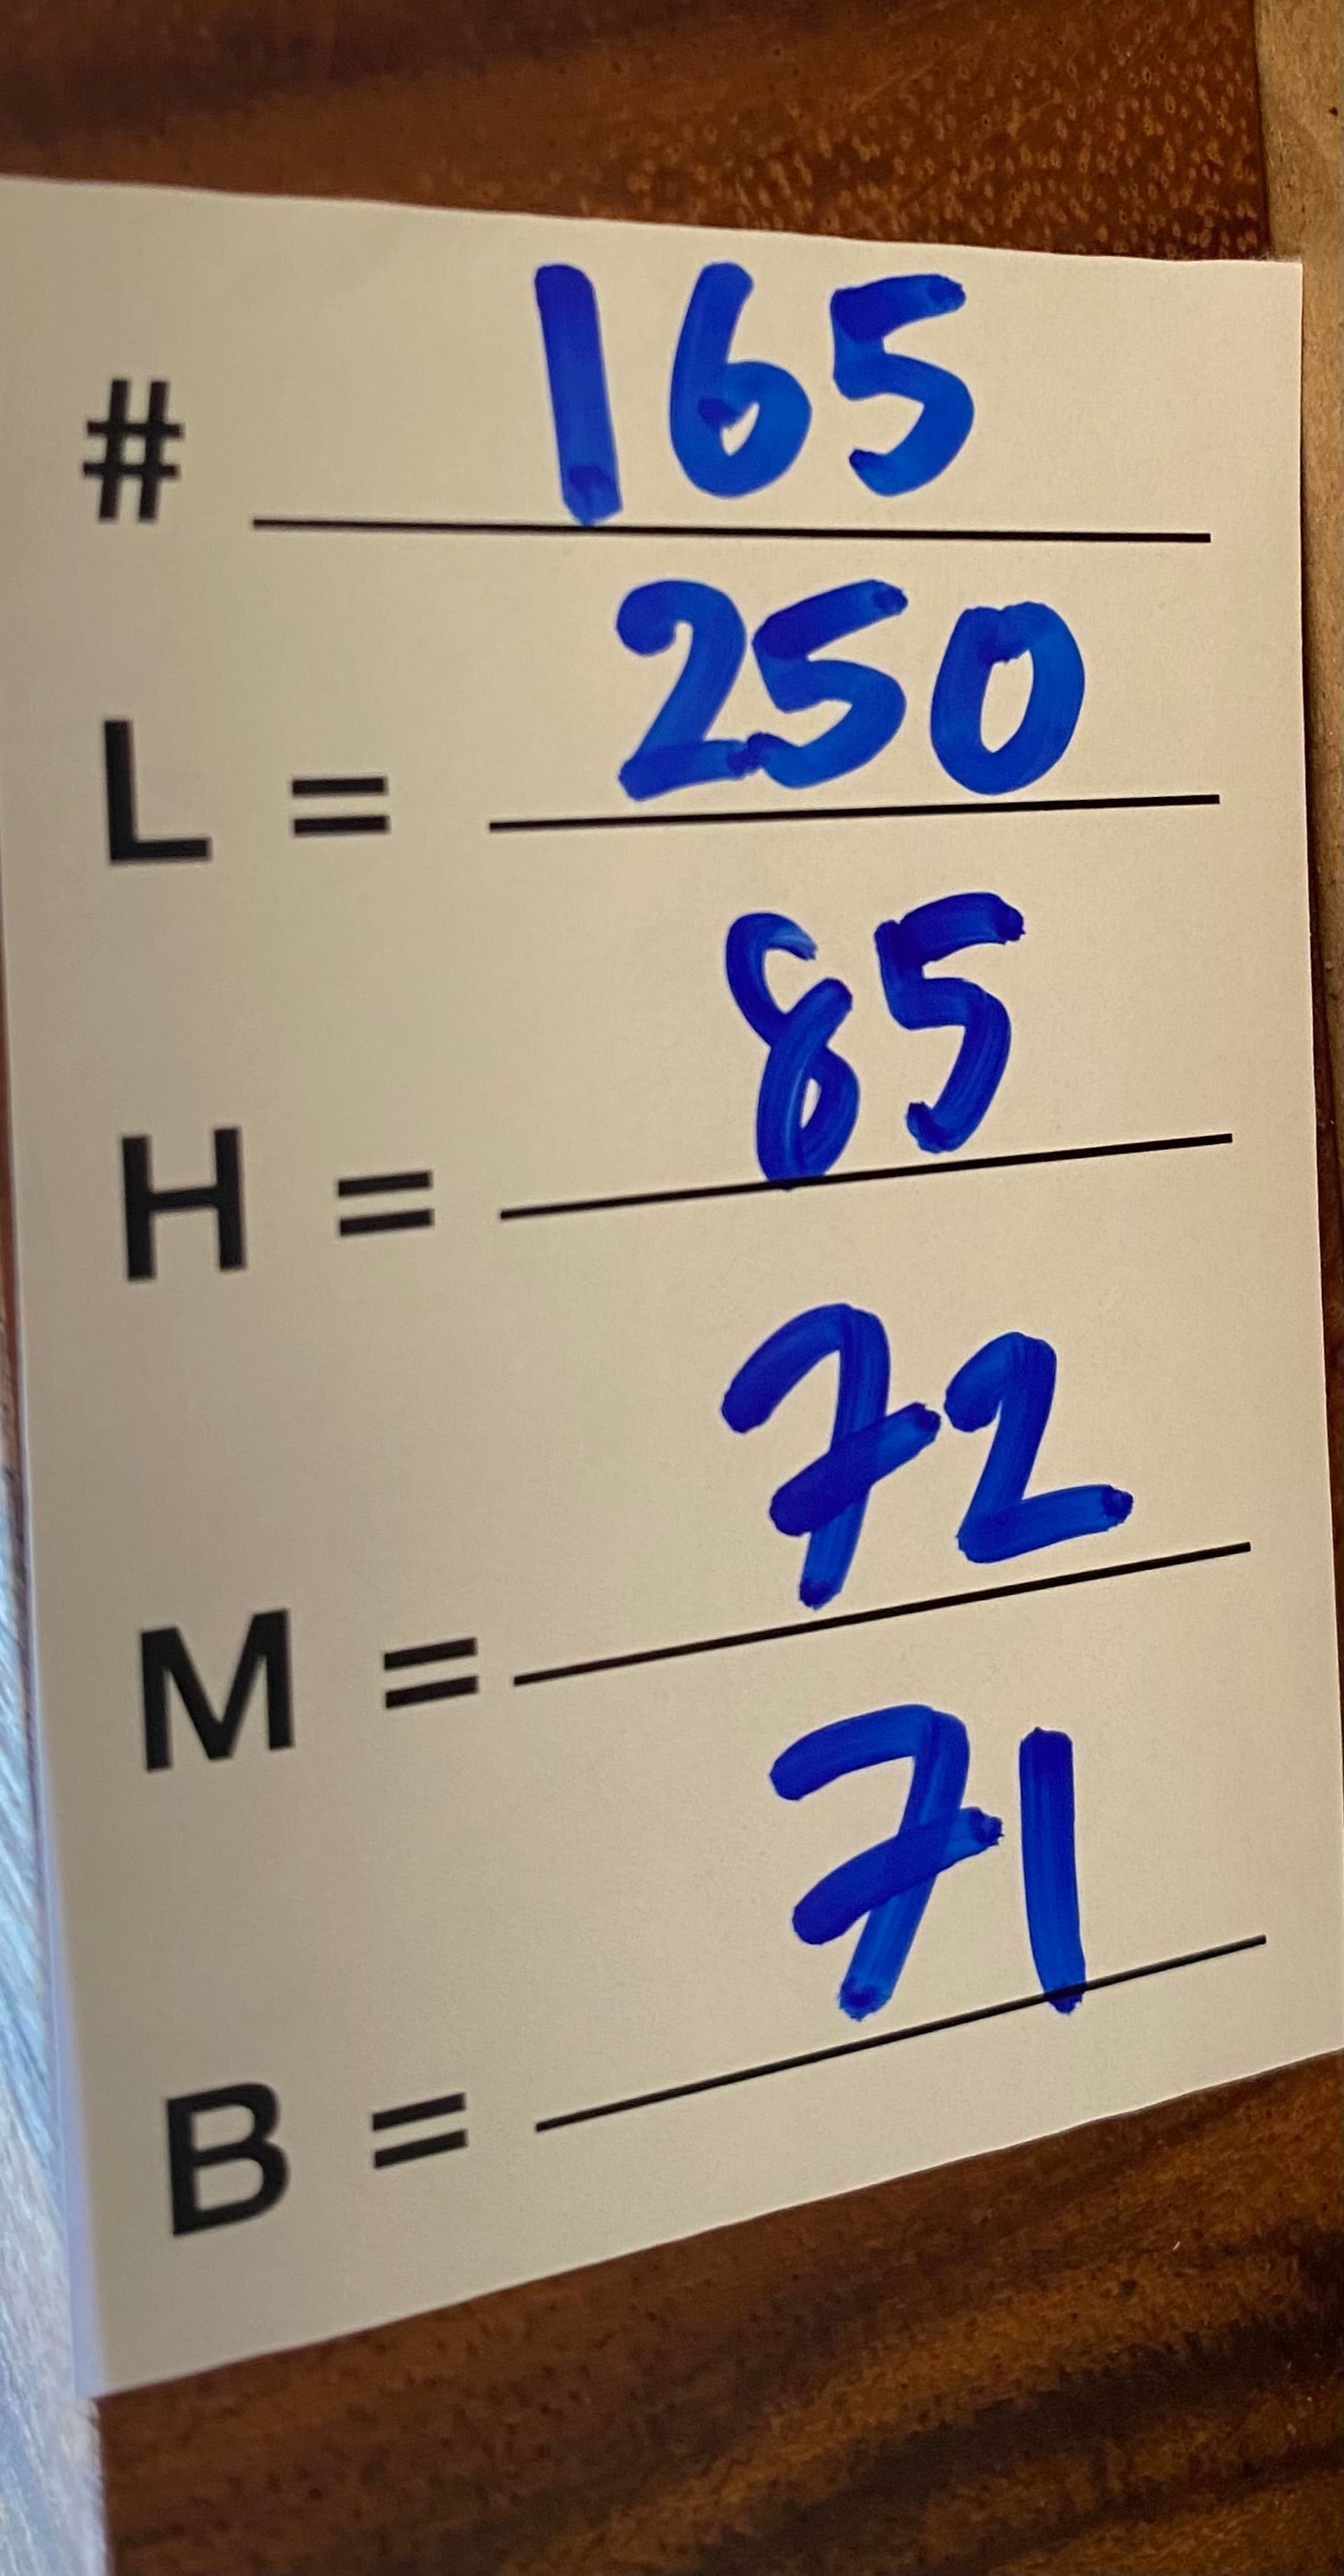 # 165
L = 250
H = 85
M = 72
B = 71